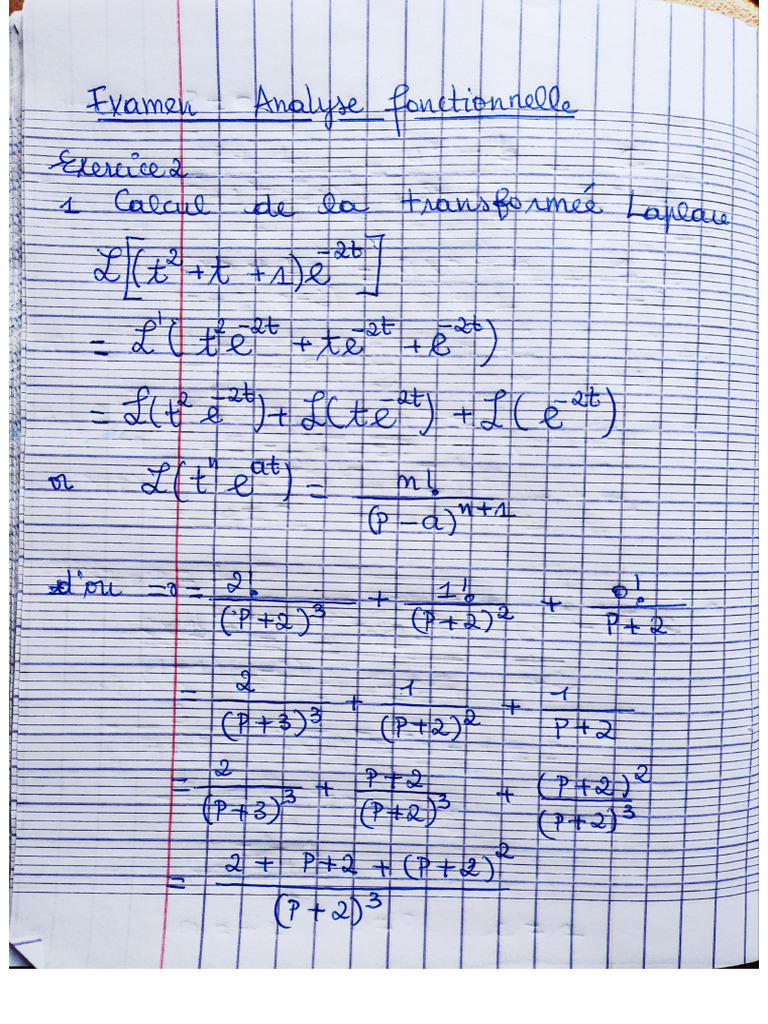 Examen Analyse fonctionnelle
Exercice 2
1 Calcul de la transformeé Laplace
ℒ[(t² + t + 1)e^{-2t}]
= ℒ(t²e^{-2t} + te^{-2t} + e^{-2t})
= ℒ(t² e^{-2t}) + ℒ(te^{-2t}) + ℒ(e^{-2t})
or ℒ(tⁿ e^{at}) = n! / (P-a)^{n+1}
d'ou => = 2! / (P+2)³ + 1! / (P+2)² + 0! / P+2
= 2 / (P+3)³ + 1 / (P+2)² + 1 / P+2
= 2 / (P+3)³ + P+2 / (P+2)³ + (P+2)² / (P+2)³
= 2 + P+2 + (P+2)² / (P+2)³